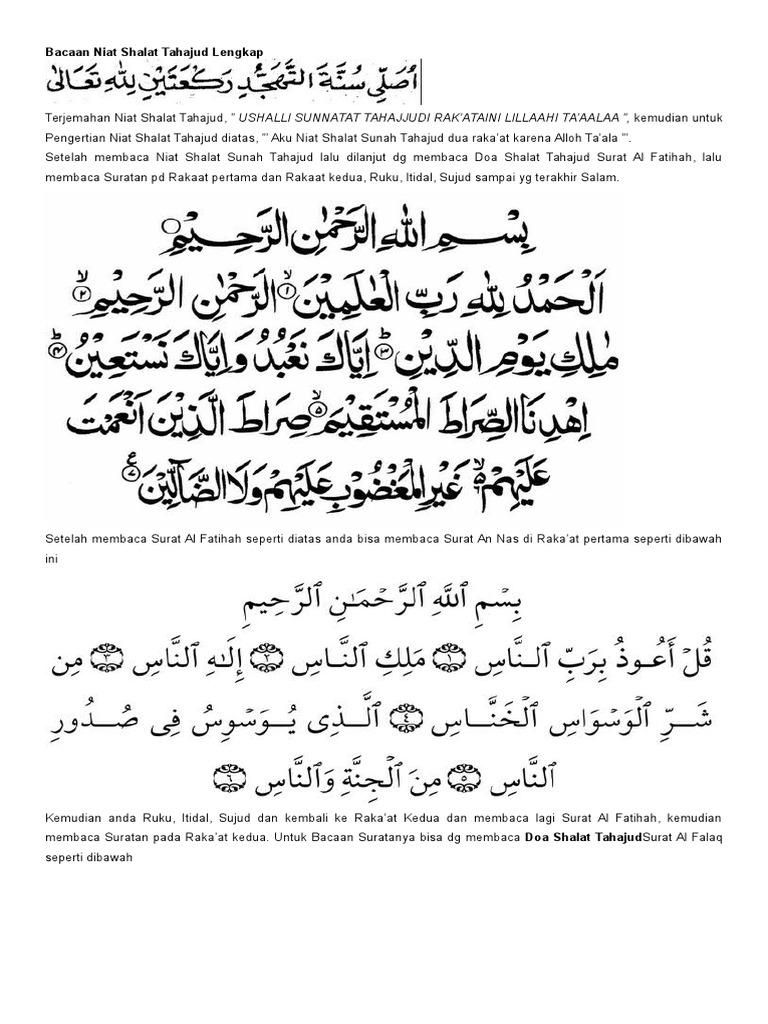 Bacaan Niat Shalat Tahajud Lengkap
اُصَلِّى سُنَّةَ التَّهَجُّدِ رَكْعَتَيْنِ لِلّٰهِ تَعَالٰى
Terjemahan Niat Shalat Tahajud, " USHALLI SUNNATAT TAHAJJUDI RAK'ATAINI LILLAAHI TA'AALAA ", kemudian untuk
Pengertian Niat Shalat Tahajud diatas, "' Aku Niat Shalat Sunah Tahajud dua raka'at karena Alloh Ta'ala "'.
Setelah membaca Niat Shalat Sunah Tahajud lalu dilanjut dg membaca Doa Shalat Tahajud Surat Al Fatihah, lalu
membaca Suratan pd Rakaat pertama dan Rakaat kedua, Ruku, Itidal, Sujud sampai yg terakhir Salam.
بِسْمِ اللهِ الرَّحْمٰنِ الرَّحِيْمِ
اَلْحَمْدُ لِلّٰهِ رَبِّ الْعٰلَمِيْنَ ۙ﴿١﴾ الرَّحْمٰنِ الرَّحِيْمِ ۙ﴿٢﴾
مٰلِكِ يَوْمِ الدِّيْنِ ۗ﴿٣﴾ اِيَّاكَ نَعْبُدُ وَاِيَّاكَ نَسْتَعِيْنُ ۗ﴿٤﴾
اِهْدِنَا الصِّرَاطَ الْمُسْتَقِيْمَ ۙ﴿٥﴾ صِرَاطَ الَّذِيْنَ اَنْعَمْتَ
عَلَيْهِمْ ۙ٦ غَيْرِ الْمَغْضُوْبِ عَلَيْهِمْ وَلَا الضَّآلِّيْنَ ﴿٧﴾ ع
Setelah membaca Surat Al Fatihah seperti diatas anda bisa membaca Surat An Nas di Raka'at pertama seperti dibawah
ini
بِسْمِ ٱللَّهِ ٱلرَّحْمَـٰنِ ٱلرَّحِيمِ
قُلْ أَعُوذُ بِرَبِّ ٱلنَّاسِ ﴿١﴾ مَلِكِ ٱلنَّاسِ ﴿٢﴾ إِلَـٰهِ ٱلنَّاسِ ﴿٣﴾ مِن
شَرِّ ٱلْوَسْوَاسِ ٱلْخَنَّاسِ ﴿٤﴾ ٱلَّذِى يُوَسْوِسُ فِى صُدُورِ
ٱلنَّاسِ ﴿٥﴾ مِنَ ٱلْجِنَّةِ وَٱلنَّاسِ ﴿٦﴾
Kemudian anda Ruku, Itidal, Sujud dan kembali ke Raka'at Kedua dan membaca lagi Surat Al Fatihah, kemudian
membaca Suratan pada Raka'at kedua. Untuk Bacaan Suratanya bisa dg membaca Doa Shalat TahajudSurat Al Falaq
seperti dibawah